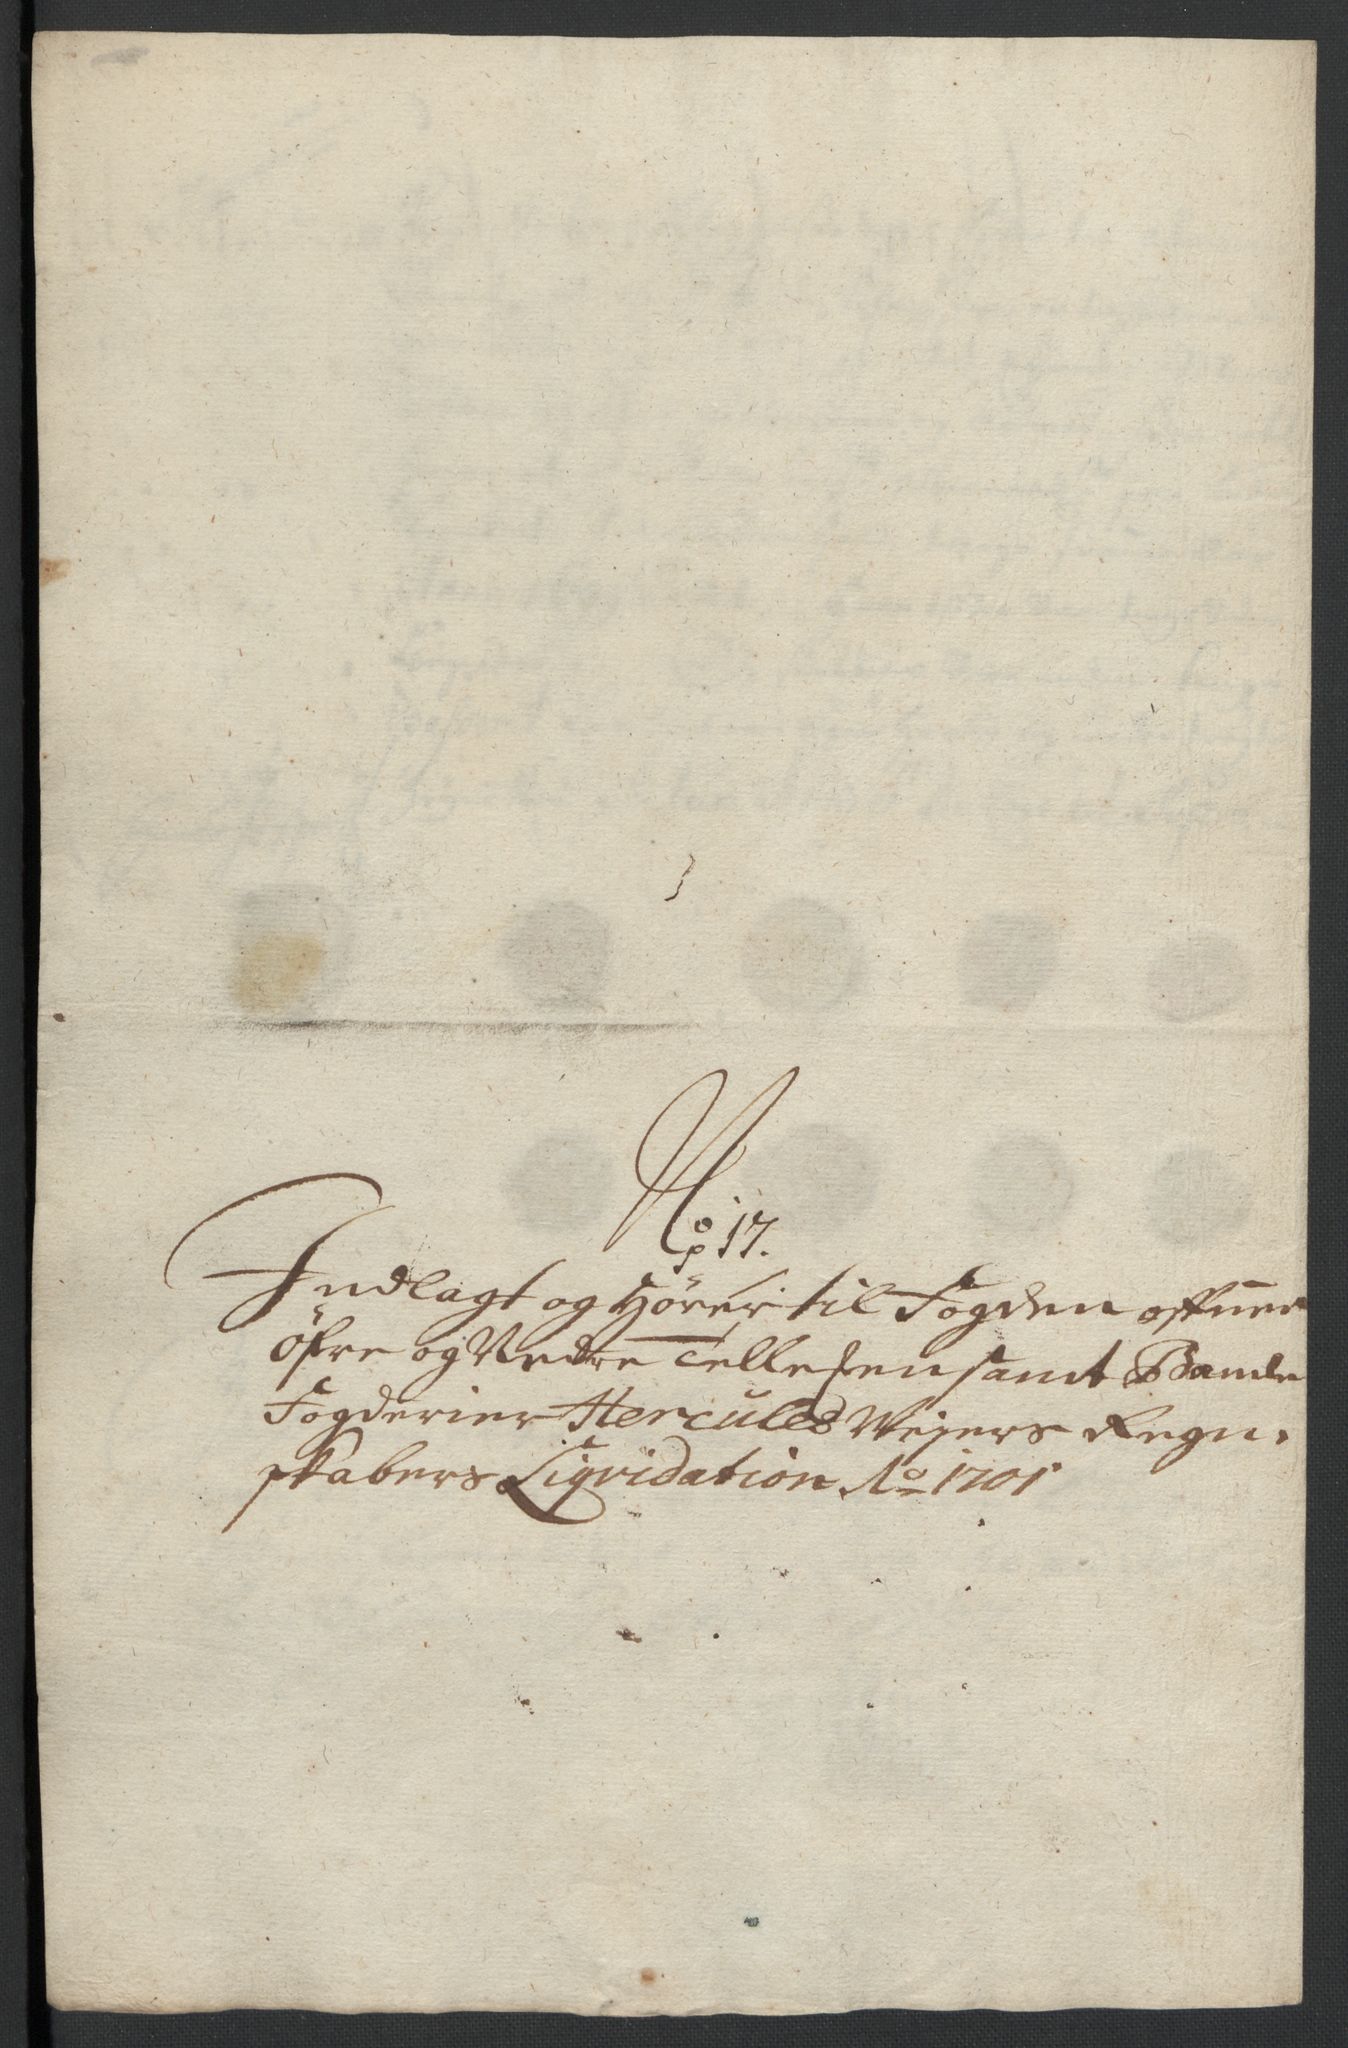 No 17.
Indlagt og Hörer til Fogden offuer
öfre og Nedre Tellefen samt Bamle
Fogderier Hercules Weyers Regn-
skabers Liqvidation Ao 1701